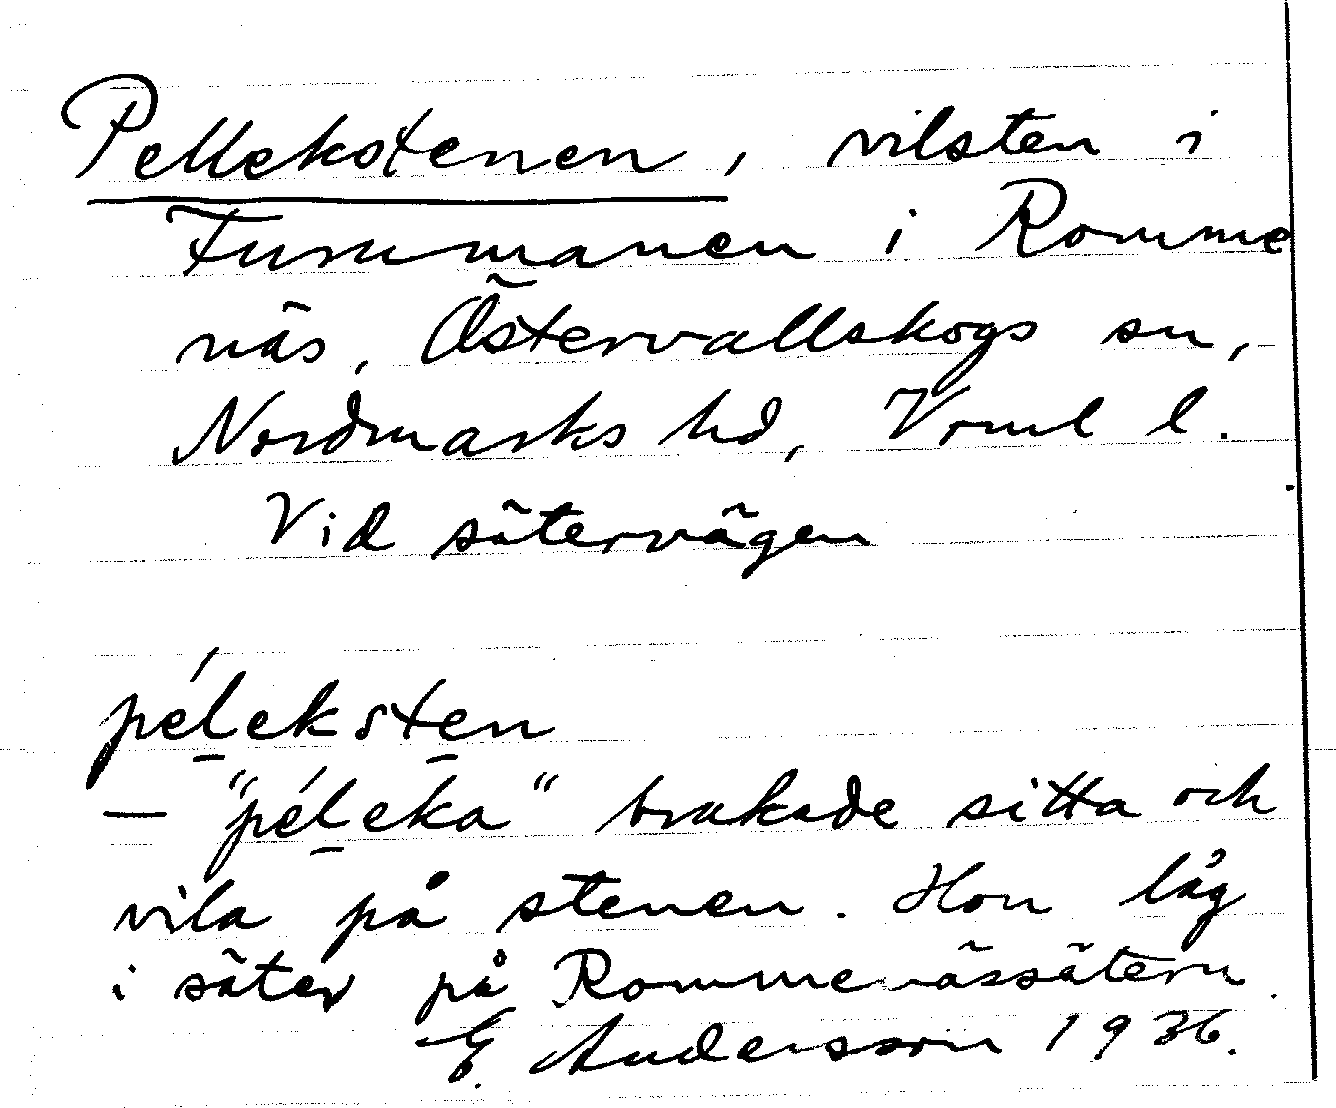 Pellekstenen, vilsten i
Furumanen i Romme
näs, Östervallskogs sn,
Nordmarks hd, Vrml l.
Vid sätervägen
péleksten
— "péleka" brukade sitta och
vila på stenen. Hon låg
i säter på Rommenässätern.
E. Andersson 1936.